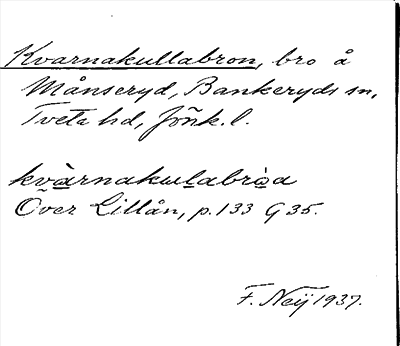 Kvarnakullabron, bro å
Månseryd, Bankeryds sn,
Tveta hd, Jönk. l.
kvàrnakulabròa
Över Lillån, p. 133 G 35.
F. Neij 1937.